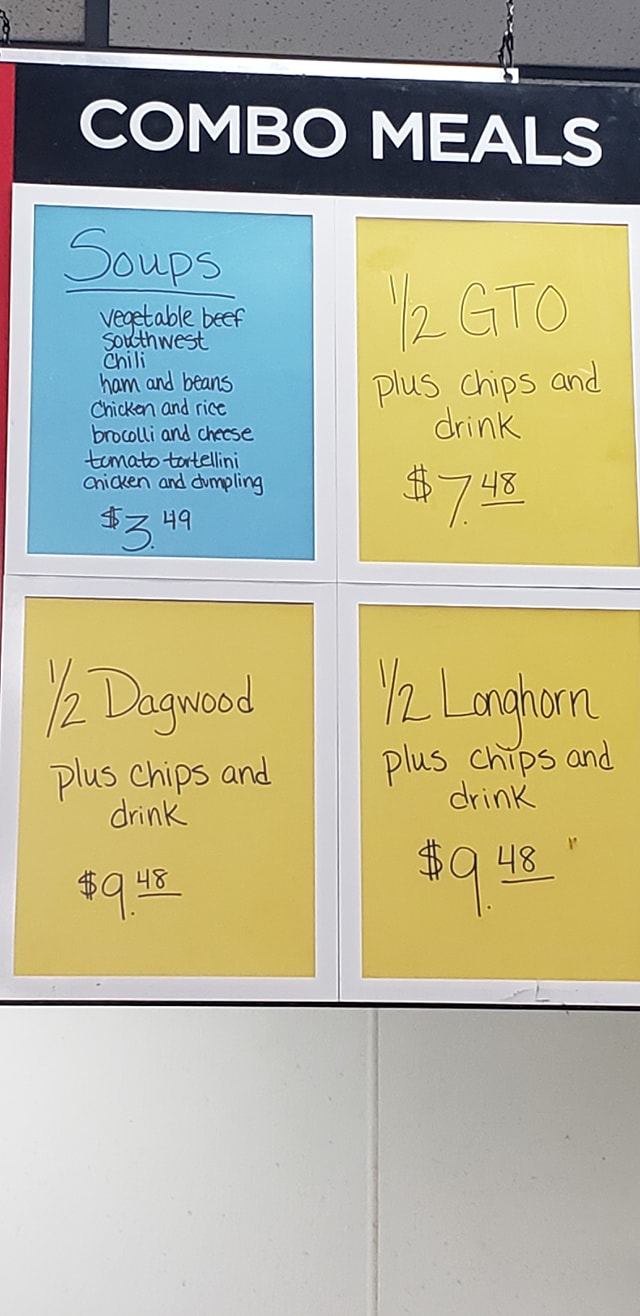 COMBO MEALS
Soups
vegetable beef
southwest
Chili
ham and beans
Chicken and rice
brocolli and cheese
tomato tortellini
chicken and dumpling
$3.49
1/2 GTO
plus chips and
drink
$7.48
1/2 Dagwood
plus chips and
drink
$9.48
1/2 Longhorn
plus chips and
drink
$9.48